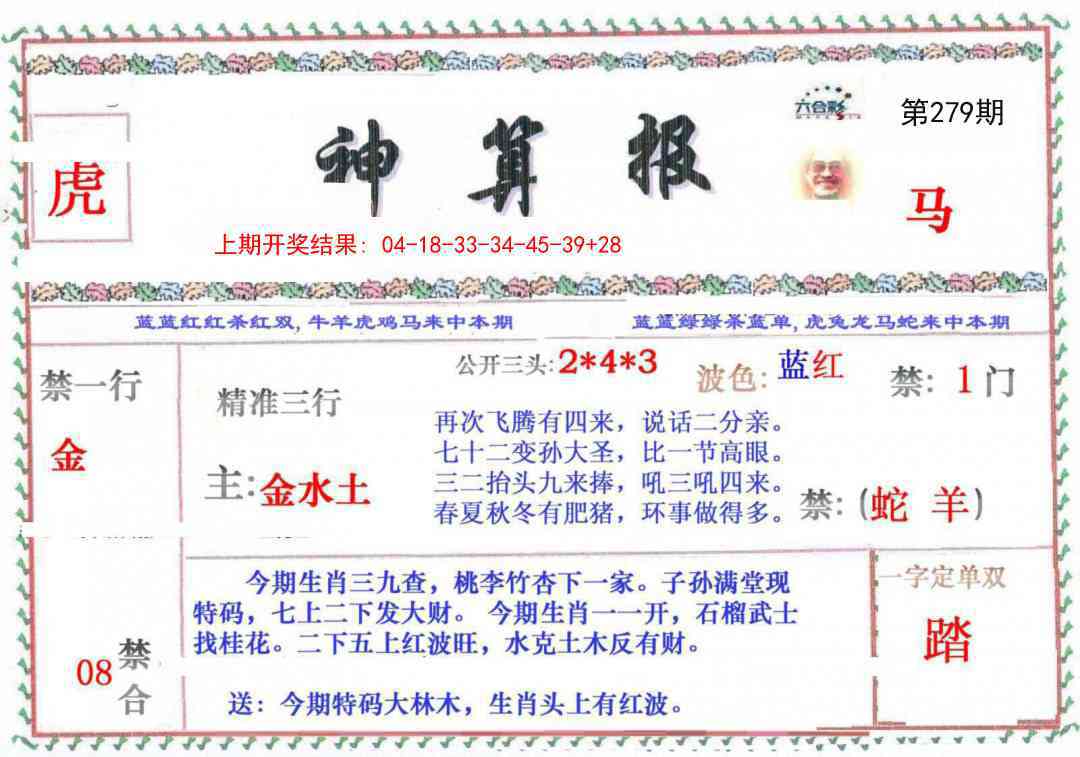 六合彩
第279期
虎
神算报
马
上期开奖结果：04-18-33-34-45-39+28
蓝蓝红红杀红双，牛羊虎鸡马来中本期
蓝蓝绿绿杀蓝单，虎兔龙马蛇来中本期
公开三头:2*4*3
波色:蓝红
禁：1门
禁一行
金
精准三行
主:金水土
再次飞腾有四来，说话二分亲。
七十二变孙大圣，比一节高眼。
三二抬头九来捧，吼三吼四来。
春夏秋冬有肥猪，环事做得多。
禁：(蛇 羊)
今期生肖三九查，桃李竹杏下一家。子孙满堂现
特码，七上二下发大财。 今期生肖一一开，石榴武士
找桂花。二下五上红波旺，水克土木反有财。
送：今期特码大林木，生肖头上有红波。
08
禁合
一字定单双
踏